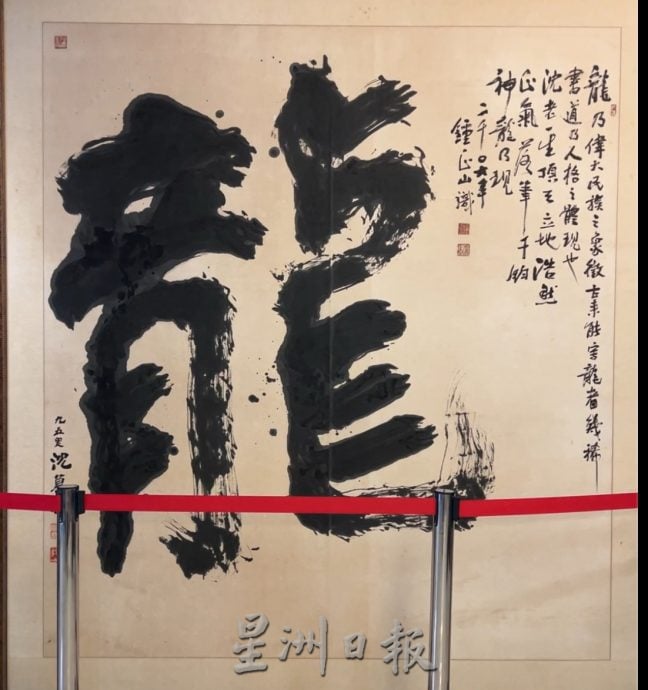 龍乃偉大民族之象徵古來能龍者幾稀
書道乃人格之體現也
沈老一生頂天立地浩然
正氣落筆千鈞
神龍乃現
二千〇六年
鍾正山識
龍
九五叟沈慕
星洲日報